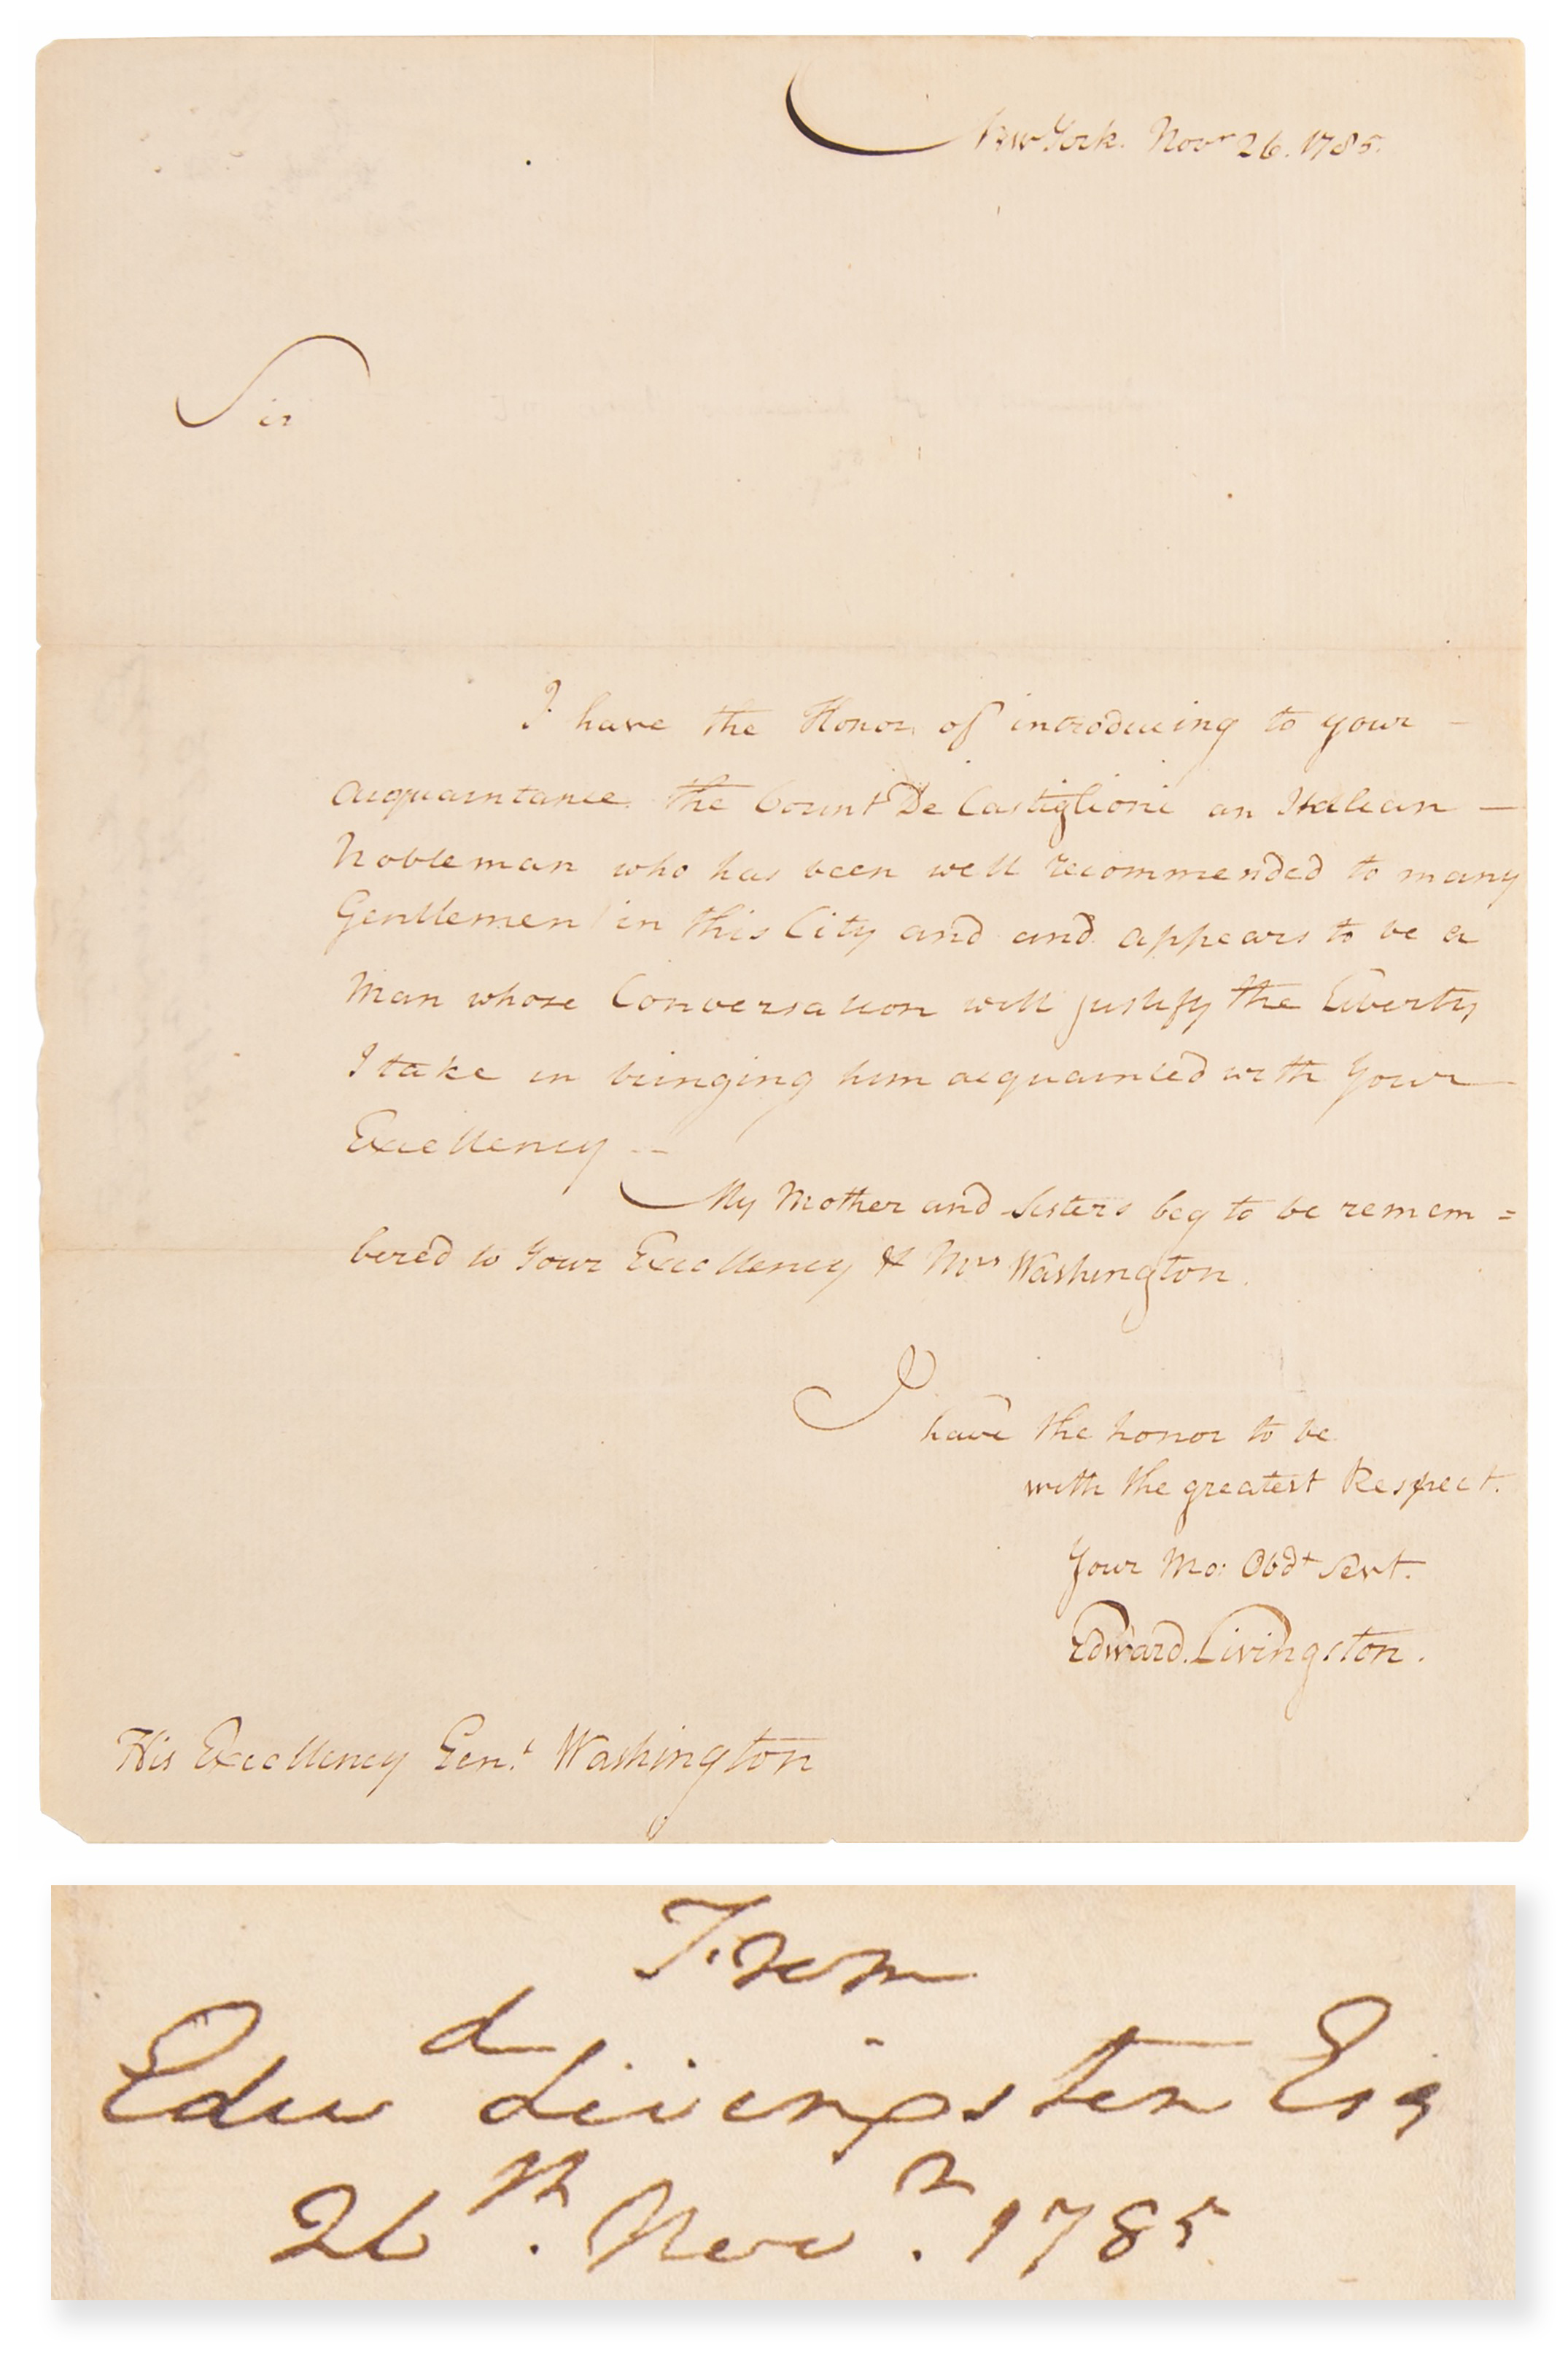 New York. Novr 26. 1785.
Sir
I have the Honor of introducing to your -
acquaintance the Count De Castiglioni an Italian -
Nobleman who has been well recommended to many
Gentlemen in this City and and appears to be a
Man whose Conversation will justify the Liberty
I take in bringing him acquainted with Your
Excellency --
My Mother and Sisters beg to be remem =
bered to Your Excellency & Mrs Washington.
I
have the honor to be
with the greatest Respect.
Your Mo: Obdt Servt.
Edward Livingston.
His Excellency Genl. Washington
From
Edwd Livingston Esq
26th. Novr. 1785